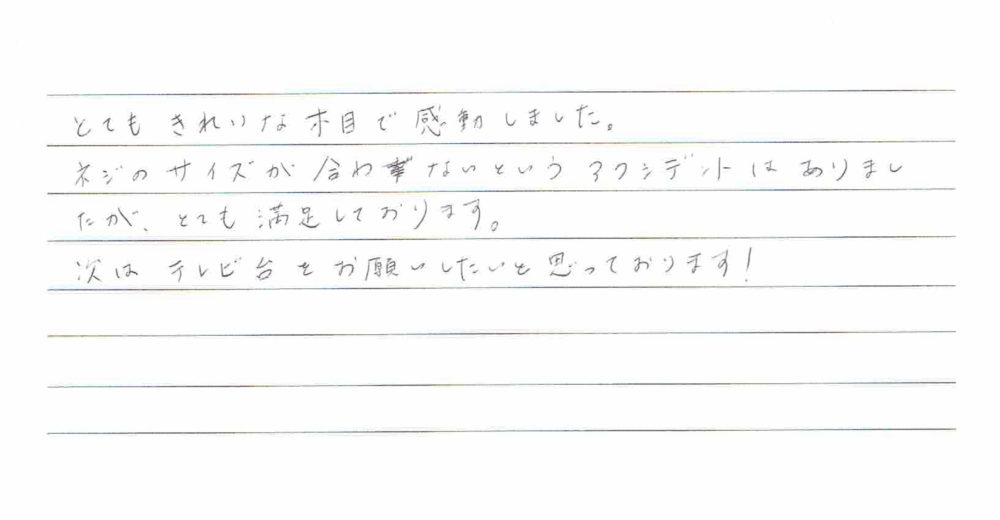 とてもきれいな木目で感動しました。
ネジのサイズが合わないというアクシデントはありまし
たが、とても満足しております。
次はテレビ台をお願いしたいと思っております!